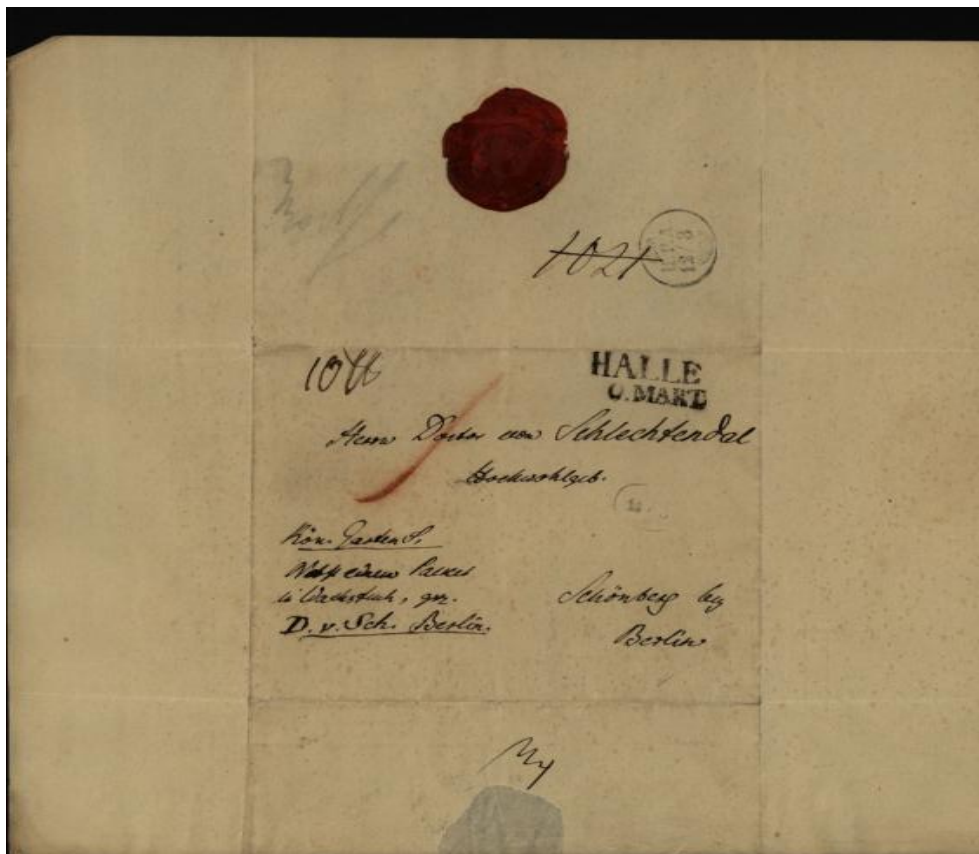 1021
HALLE
Herrn Doctor von Schlechtendal
Hochwohlgeb.
Kön. Garten S.
Nebst einem Packet
in Wachstuch, gez.
D. v. Sch. Berlin.
Schönberg bey
Berlin